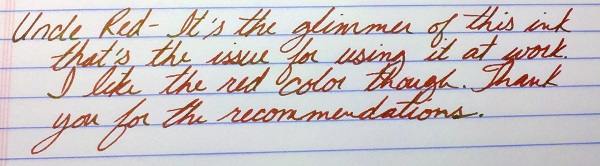 Uncle Red- It's the glimmer of this ink
that's the issue for using it at work.
I like the red color though. Thank
you for the recommendations.